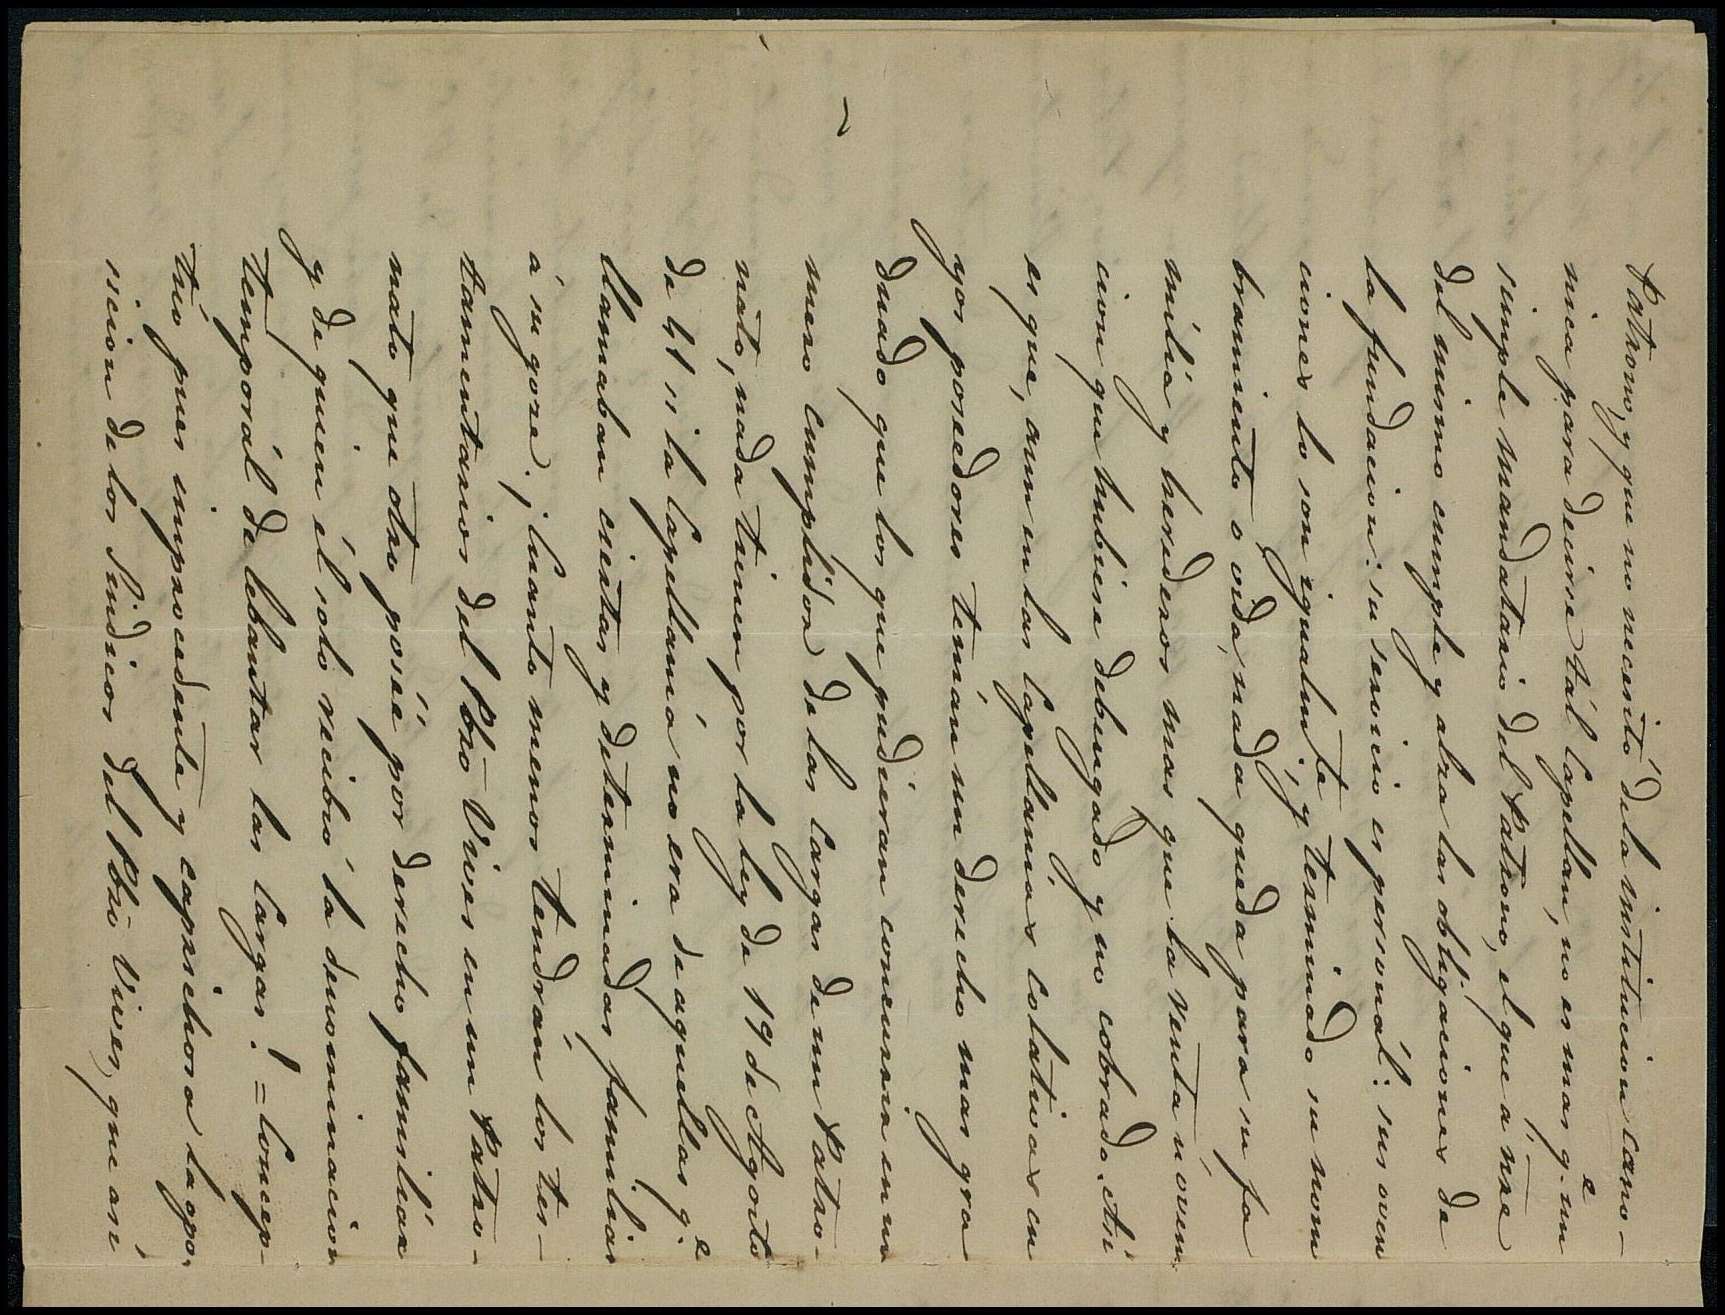 Patrono, y que no necesitó de la institucion Cano-
nica para decirse tál Capellan, no es mas q.e un
simple mandatario del Patrono, el que á nre
del mismo cumple y alza las obligaciones de
la fundacion: su servicio es personál: sus oven
ciones lo son igualm.te y terminado su nom
bramiento o vida, nada queda para su fa
milia y herederos mas que la renta ú oven
cion que hubiese debengado y no cobrado. Asi
es que, aun en las Capellanias colativas en
yos poseedores tenian un derecho mas gra
duado que los que pudieran concurrir en un
mero cumplidor de las cargas de un Patro-
nato, nada tienen por la ley de 19 de Agosto
de 41 si la Capellania no era de aquellas q.e
llamaban ciertas y determinadas familias
á su goze; ¿cuanto menos tendrán los tes-
tamentarios del Pbro Vives en un Patro-
nato que otro posée por derecho familiar
y de quien él solo recibió la denominacion
temporál de lebantar las cargas? = Concep-
tuo pues improcedente y caprichosa la opo-
sicion de los Sindicos del Pbro Vives, que asi